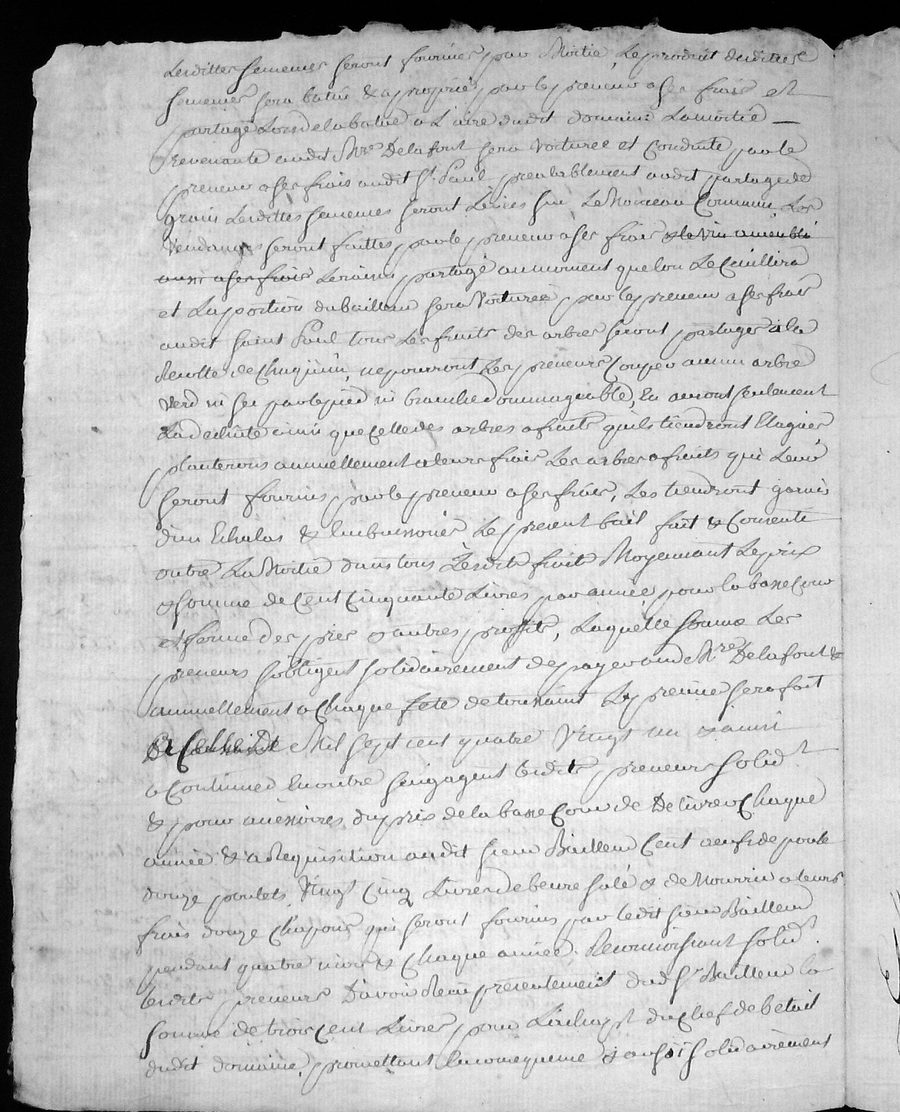 Lesdittes semences seront fournies par Moitié, Le produit desdittes
semences sera batüe & aproprié par le preneur a ses frais et
partagé Lors de la batue a L'aire dudit domaine La moitié —
revenante audit Mre Delafont sera voiturée et Conduite par le
preneur a ses frais audit St. Paul, prealablement audit partage de
grain Lesdittes semences seront Levées sur Le Monceau Commun, Les
Vendanges seront faittes par le preneur a ses frais & le vin ameubli
aussi a ses frais Le raisin partagé au moment que lon Le Cueillira
et La portion du bailleur sera Voiturée par le preneur a ses frais
audit saint Paul tous Les fruits des arbres seront partagés a la
Recolte de Chaqu'un, ne pourront Les preneurs Couper aucun arbre
Verd ni sec par le pied ni branche dommageable, En auront seulement
La ainsi que Celle des arbres a fruits qu'ils tiendront Elagués
planterons annuellement a leurs frais Les arbres a fruits qui Leur
seront fournis par le preneur a ses frais, Les tiendront garnis
d'un Echalas & Embuissonés Le present bail fait & Consenti
outre La Moitié dans tous Lesdits fruits Moyennant Le prix
& somme de Cent Cinquante Livres par année pour la basse Cour
et ferme des prés & autres profits, Laquelle somme Les
preneurs s'obligent solidairement de payer aud. Mre Delafont &
annuellement a Chaque fete de toussaint Le premier sera fait
Mil sept cent quatre Vingt un & ainsi
a Continuer En outre s'engagent lesdits preneurs solidt.
& pour accessoires du prix de la basse Cour de De livrer Chaque
année & a Requisition audit sieur Bailleur Cent oeufs de poule
douze poulets, Vingt Cinq Livres de beure salé & de Nourrir a leurs
frais douze Chapons qui seront fournis par ledit sieur Bailleur
pendant quatre mois & Chaque année. Reconnoissant solidt.
lesdits preneurs D'avoir Recu presentement dud. Sr. Bailleur la
somme de trois Cent Livres pour L'achapt du Chef de betail
dudit domaine, promettant En consequence & aussi solidairement